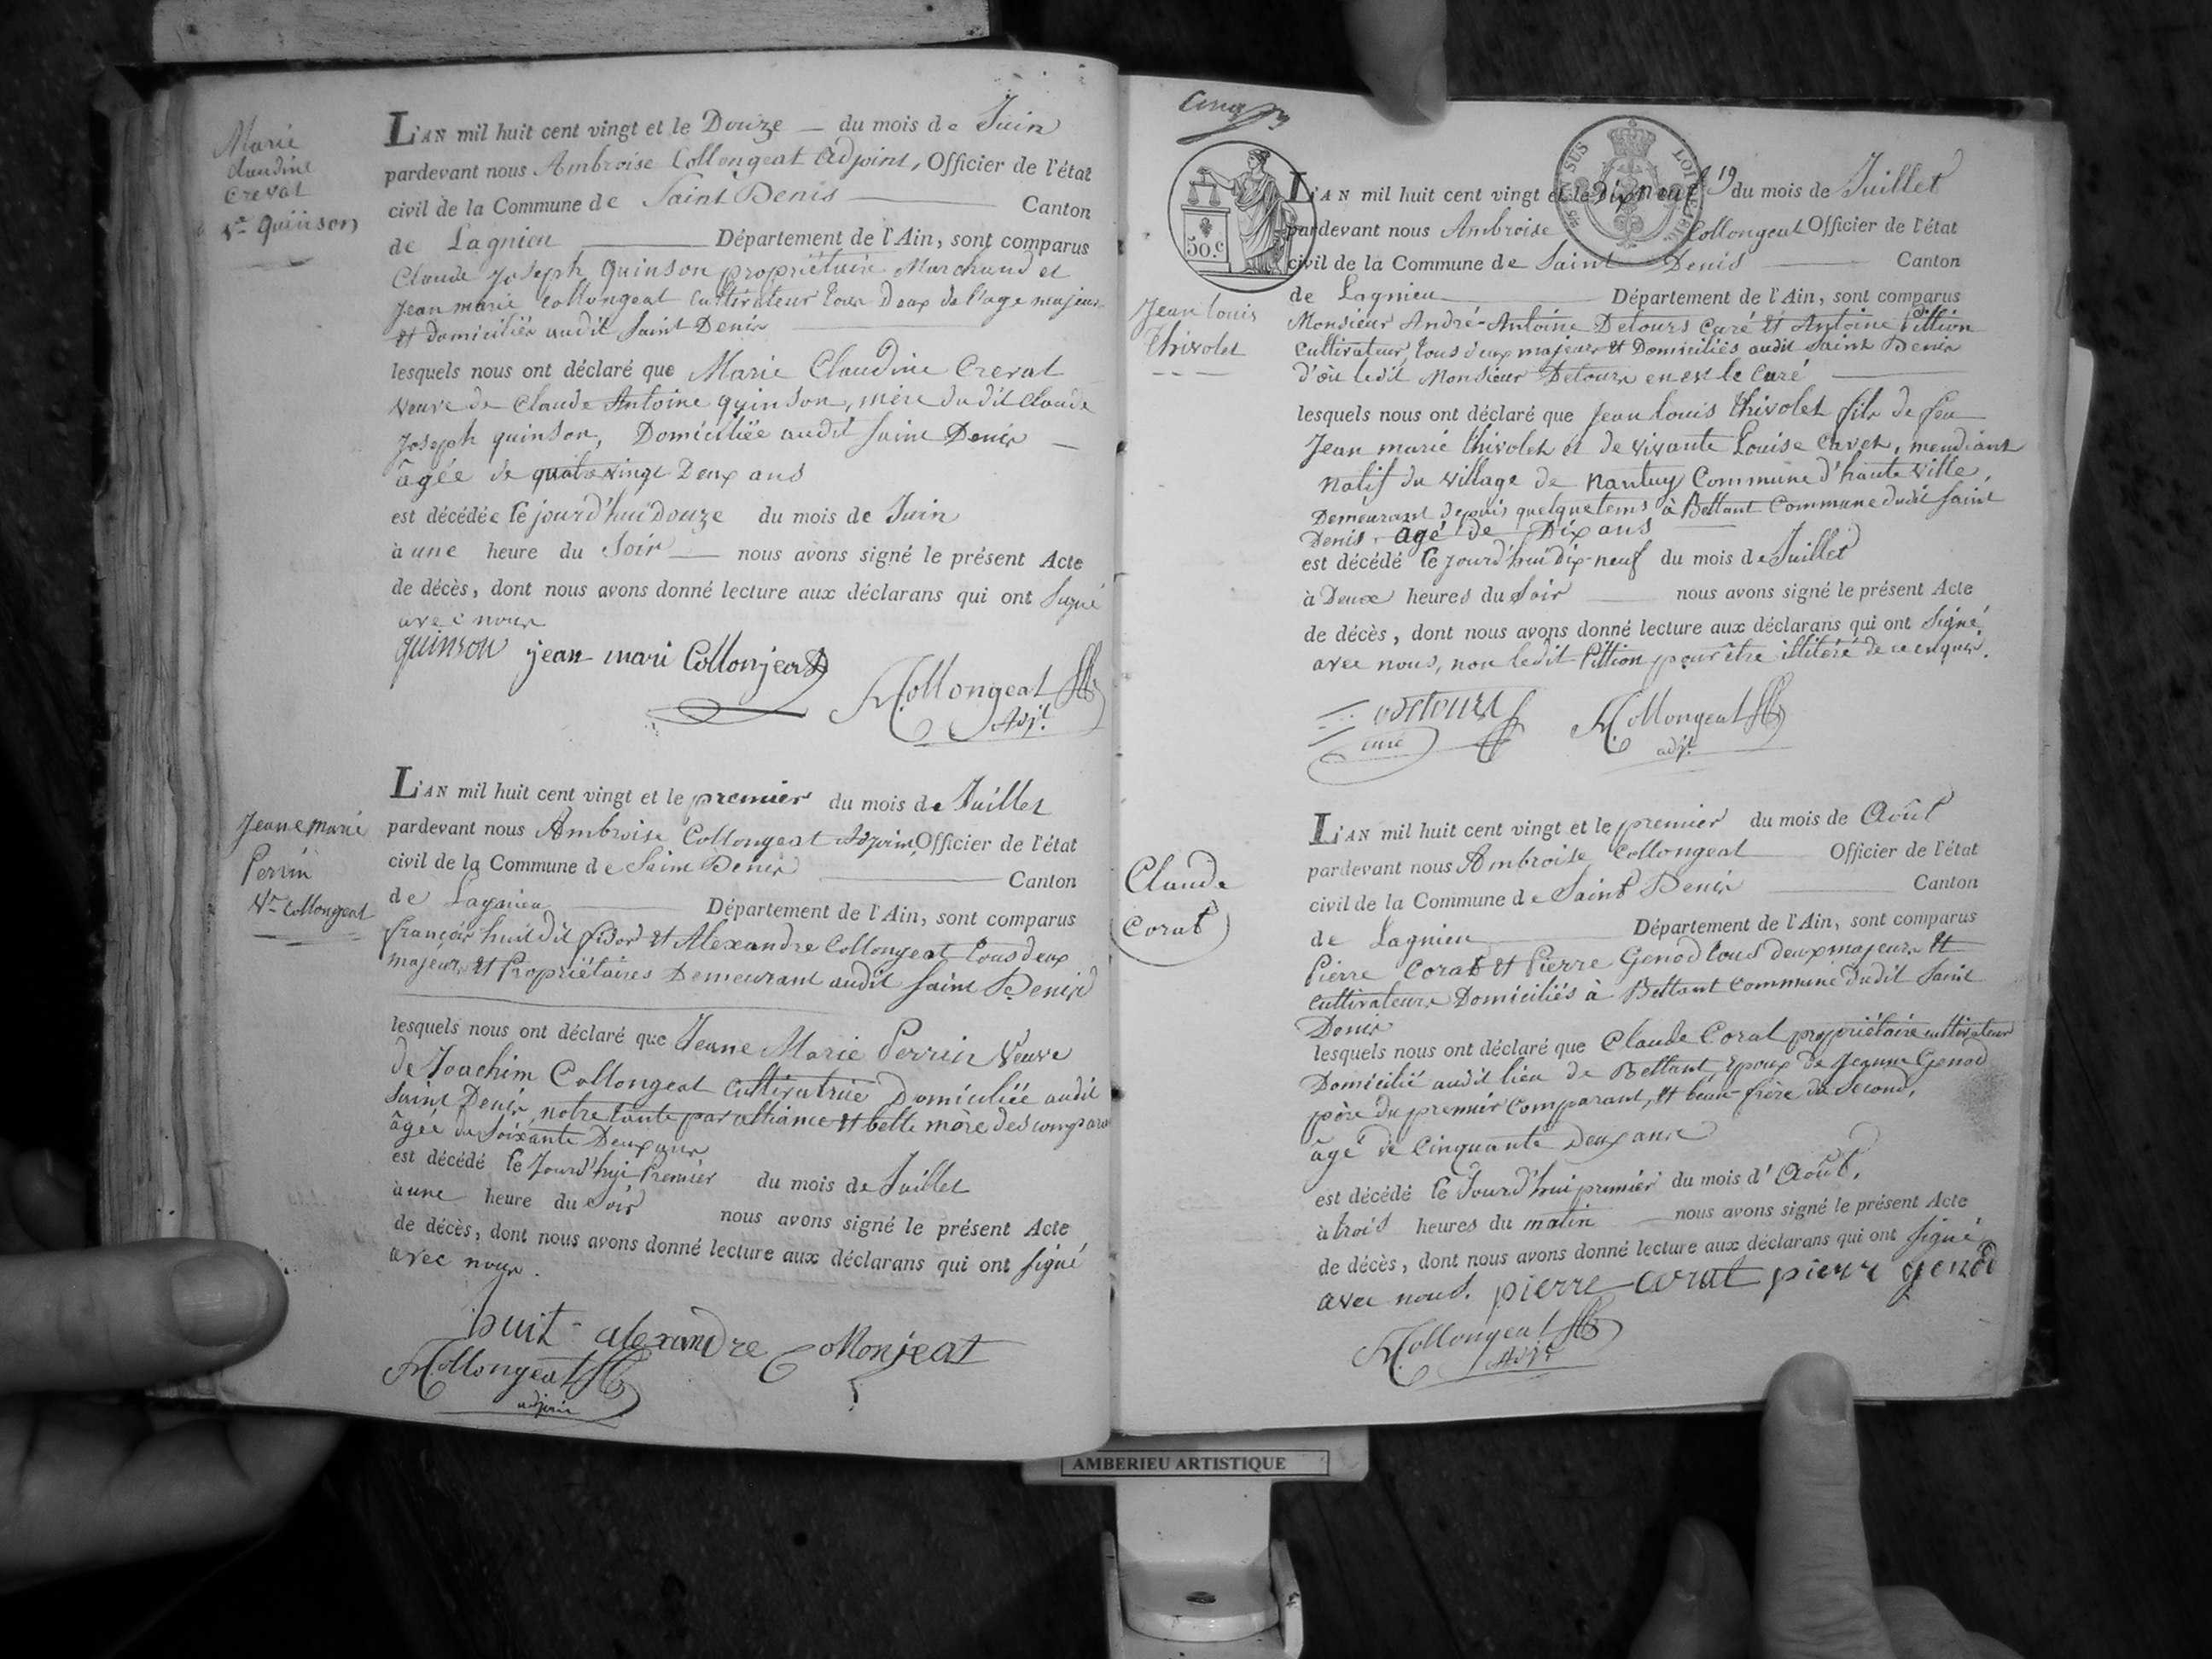 Marie
Claudine
Crevat
Ve Quinson
L'AN mil huit cent vingt et le Douze — du mois de Juin
pardevant nous Ambroise Collongeat Adjoint, Officier de l'état
civil de la Commune de Saint Denis — Canton
de Lagnieu — Département de l'Ain, sont comparus
Claude Joseph Quinson propriétaire Marchand et
Jean marie Collongeat Cultivateur tous Deux de l'age majeur
et Domiciliés audit Saint Denis
lesquels nous ont déclaré que Marie Claudine Crevat
veuve de Claude Antoine quinson, mère dudit Claude
Joseph quinson, Domiciliée audit Saint Denis —
âgée de quatre vingt Deux ans
est décédée le jourd'hui Douze du mois de Juin
à une heure du Soir — nous avons signé le présent Acte
de décès, dont nous avons donné lecture aux déclarans qui ont Signé
avec nous
quinson jean mari Collonjeat
Collongeat
Adjt
Jeane marie
Perrin
Ve Collongeat
L'AN mil huit cent vingt et le premier du mois de Juillet
pardevant nous Ambroise Collongeat Adjoint, Officier de l'état
civil de la Commune de Saint Denis — Canton
de Lagnieu — Département de l'Ain, sont comparus
françois huit dit et Alexandre Collongeat tous deux
majeurs et Propriétaires Demeurant audit Saint Denis
lesquels nous ont déclaré que Jeane Marie Perrin Veuve
de Joachim Collongeat Cultivatrice Domiciliée audit
Saint Denis, notre tante par alliance et belle mère des
âgée de Soixante Deux ans
est décédé le Jourd'hui Premier du mois de Juillet
à une heure du Soir nous avons signé le présent Acte
de décès, dont nous avons donné lecture aux déclarans qui ont signé
avec nous.
huit alexandre Collonjeat
Collongeat
adjoint
Cinq
50.c
LOI
Jean louis
thivolet
L'AN mil huit cent vingt et le Dix neuf 19 du mois de Juillet
pardevant nous Ambroise Collongeat Officier de l'état
civil de la Commune de Saint Denis — Canton
de Lagnieu — Département de l'Ain, sont comparus
Monsieur André-Antoine Detours Curé et Antoine Pittion
Cultivateur, tous deux majeurs et Domiciliés audit Saint Denis
d'où ledit Monsieur Detours en est le Curé —
lesquels nous ont déclaré que Jean louis thivolet fils de feu
Jean marie thivolet et de vivante Louise Caret, mendiant
natif du village de Nantuy Commune d'haute ville,
Demeurant depuis quelque tems à Bettant Commune dudit Saint
Denis, agé de Dix ans
est décédé le jourd'hui dix-neuf du mois de Juillet
à Deux heures du Soir — nous avons signé le présent Acte
de décès, dont nous avons donné lecture aux déclarans qui ont Signé
avec nous, non ledit Pittion pour être illitéré de ce enquis.
Detours
curé
Collongeat
adjt
Claude
Corat
L'AN mil huit cent vingt et le premier du mois de Août
pardevant nous Ambroise Collongeat Officier de l'état
civil de la Commune de Saint Denis — Canton
de Lagnieu — Département de l'Ain, sont comparus
Pierre Corat et Pierre Genod tous deux majeurs et
Cultivateurs Domiciliés à Bettant Commune dudit Saint
Denis
lesquels nous ont déclaré que Claude Corat propriétaire cultivateur
Domicilié audit lieu de Bettant, Epoux de Jeanne Genod
père du premier Comparant, et beau-frère du Second,
âgé de Cinquante Deux ans
est décédé le Jourd'hui premier du mois d'Août,
à trois heures du matin — nous avons signé le présent Acte
de décès, dont nous avons donné lecture aux déclarans qui ont signé
avec nous. pierre corat pierre genod
Collongeat
Adjt
AMBERIEU ARTISTIQUE